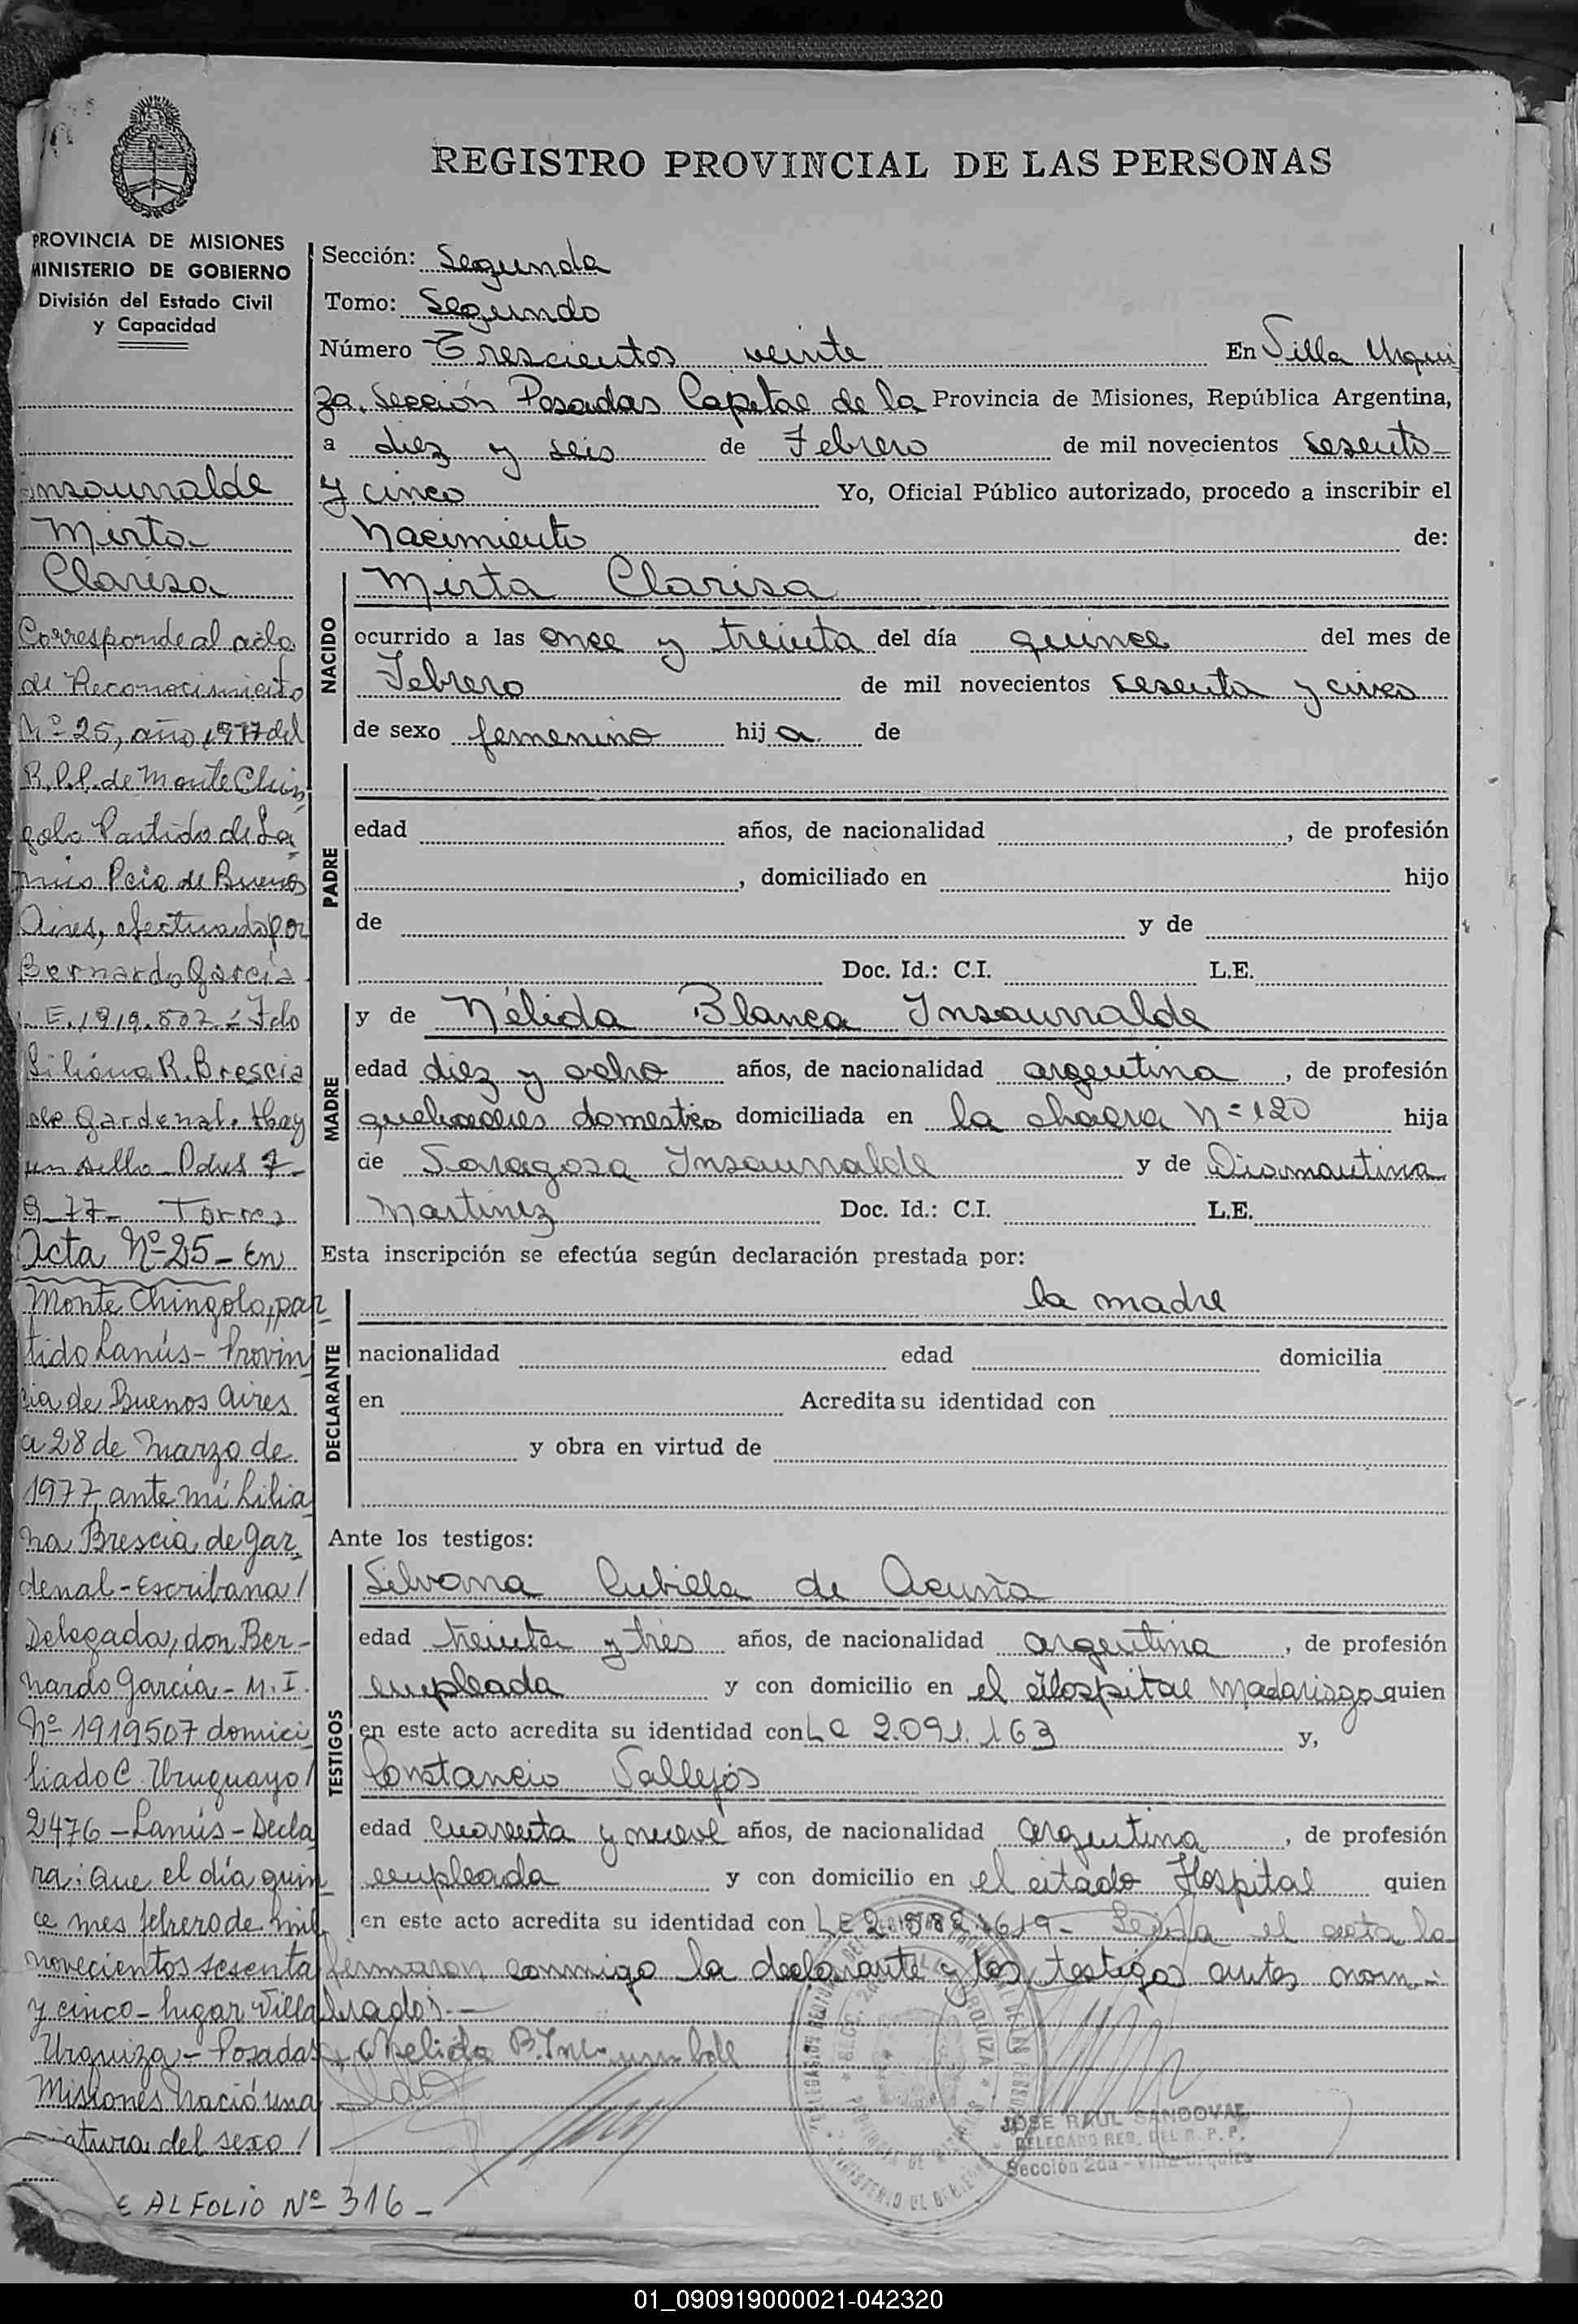 REGISTRO PROVINCIAL DE LAS PERSONAS
PROVINCIA DE MISIONES
MINISTERIO DE GOBIERNO
División del Estado Civil
y Capacidad
Insaurralde
Mirta
Clarisa
Corresponde al acta
de Reconocimiento
Nº 25, año 1977 del
R.P.P. de Monte Chin
golo Partido de La
nús Pcia de Buenos
Aires, efectuado por
Bernardo García
E. 1.919.507 - Fdo
Liliana R. Brescia
de Gardenal. Hay
un sello. Pdas 7-
9-77- Torres
Acta Nº 25 - En
Monte Chingolo, par
tido Lanús - Provin
cia de Buenos Aires
a 28 de Marzo de
1977, ante mí Lilia
na Brescia de Gar
denal - Escribana /
Delegada, don Ber-
nardo García - M.I.
Nº 1919507 domici
liado C. Uruguayo /
2476 - Lanús - Decla
ra: Que el día quin
ce mes febrero de mil
novecientos sesenta
y cinco - lugar Villa
Urquiza - Posadas
Misiones nació una
criatura del sexo /
E AL FOLIO Nº 316 -
Sección: Segunda
Tomo: Segundo
Número Trescientos veinte En Villa Urqui
za, Sección Posadas Capital de la Provincia de Misiones, República Argentina,
a diez y seis de Febrero de mil novecientos sesenta
y cinco Yo, Oficial Público autorizado, procedo a inscribir el
Nacimiento de:
NACIDO
Mirta Clarisa
ocurrido a las once y treinta del día quince del mes de
Febrero de mil novecientos sesenta y cinco
de sexo femenino hija de
PADRE
edad años, de nacionalidad , de profesión
, domiciliado en hijo
de y de
Doc. Id.: C.I. L.E.
MADRE
y de Nélida Blanca Insaurralde
edad diez y ocho años, de nacionalidad argentina , de profesión
quehaceres domestico domiciliada en la chacra Nº 120 hija
de Saragosa Insaurralde y de Diamantina
Martinez Doc. Id.: C.I. L.E.
Esta inscripción se efectúa según declaración prestada por:
DECLARANTE
la madre
nacionalidad edad domicilia
en Acredita su identidad con
y obra en virtud de
Ante los testigos:
TESTIGOS
Silvana Cubilla de Acuña
edad treinta y tres años, de nacionalidad argentina , de profesión
empleada y con domicilio en el Hospital Madariaga quien
en este acto acredita su identidad con LC 2.091.163 y,
Constancio Vallejos
edad cuarenta y nueve años, de nacionalidad argentina , de profesión
empleada y con domicilio en el citado Hospital quien
en este acto acredita su identidad con LE Leida el acta la
firmaron conmigo la declarante y los testigos antes nom-
brados.-
Nelida B. Insaurralde
JOSE RAUL SANDOVAL
DELEGADO REG. DEL R. P. P.
Sección 2da - Villa Urquiza
01_090919000021-042320